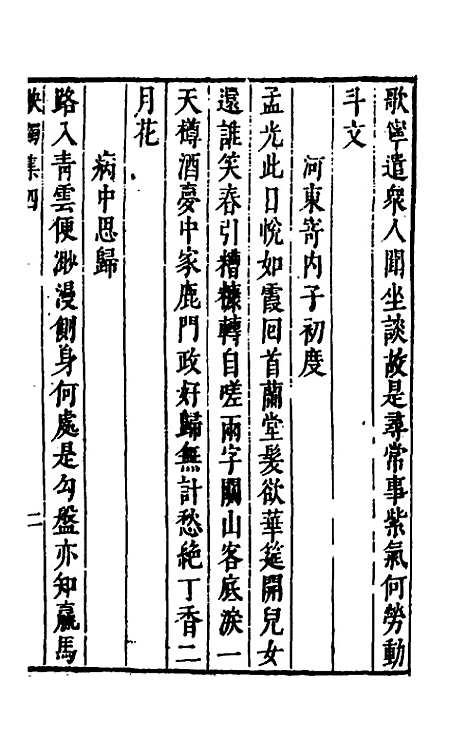 歌寧遣衆人聞坐談故是尋常事紫氣何勞動
斗文
河東寄内子初度
孟光此日悅如霞回首蘭堂髮欲華筵開兒女
還誰笑春引糟糠轉自嗟兩字關山客底淚一
天樽酒夢中家鹿門政好歸無計愁絶丁香二
月花
病中思歸
路入青雲便渺漫側身何處是勾盤亦知羸馬
集四
二